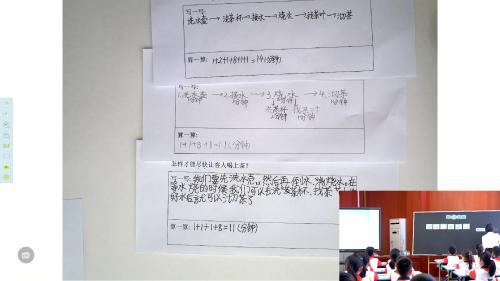 写一写:
洗水壶→洗茶杯→接水→烧水→找茶叶→沏茶
算一算: 1+2+1+8+1+1=14(分钟)
写一写:
1.洗水壶→2.接水→3.烧水→4.沏茶
1分钟 1分钟 8分钟 1分钟
洗茶杯 找茶叶
2分钟 1分钟
算一算:
1+1+8+1=11(分钟)
怎样才能尽快让客人喝上茶?
写一写: 我们要先洗水壶,然后再接水,烧水。在
等水烧的时候我们可以去洗茶杯、找茶
好水后就可以沏茶了
算一算: 1+1+1+8=11(分钟)